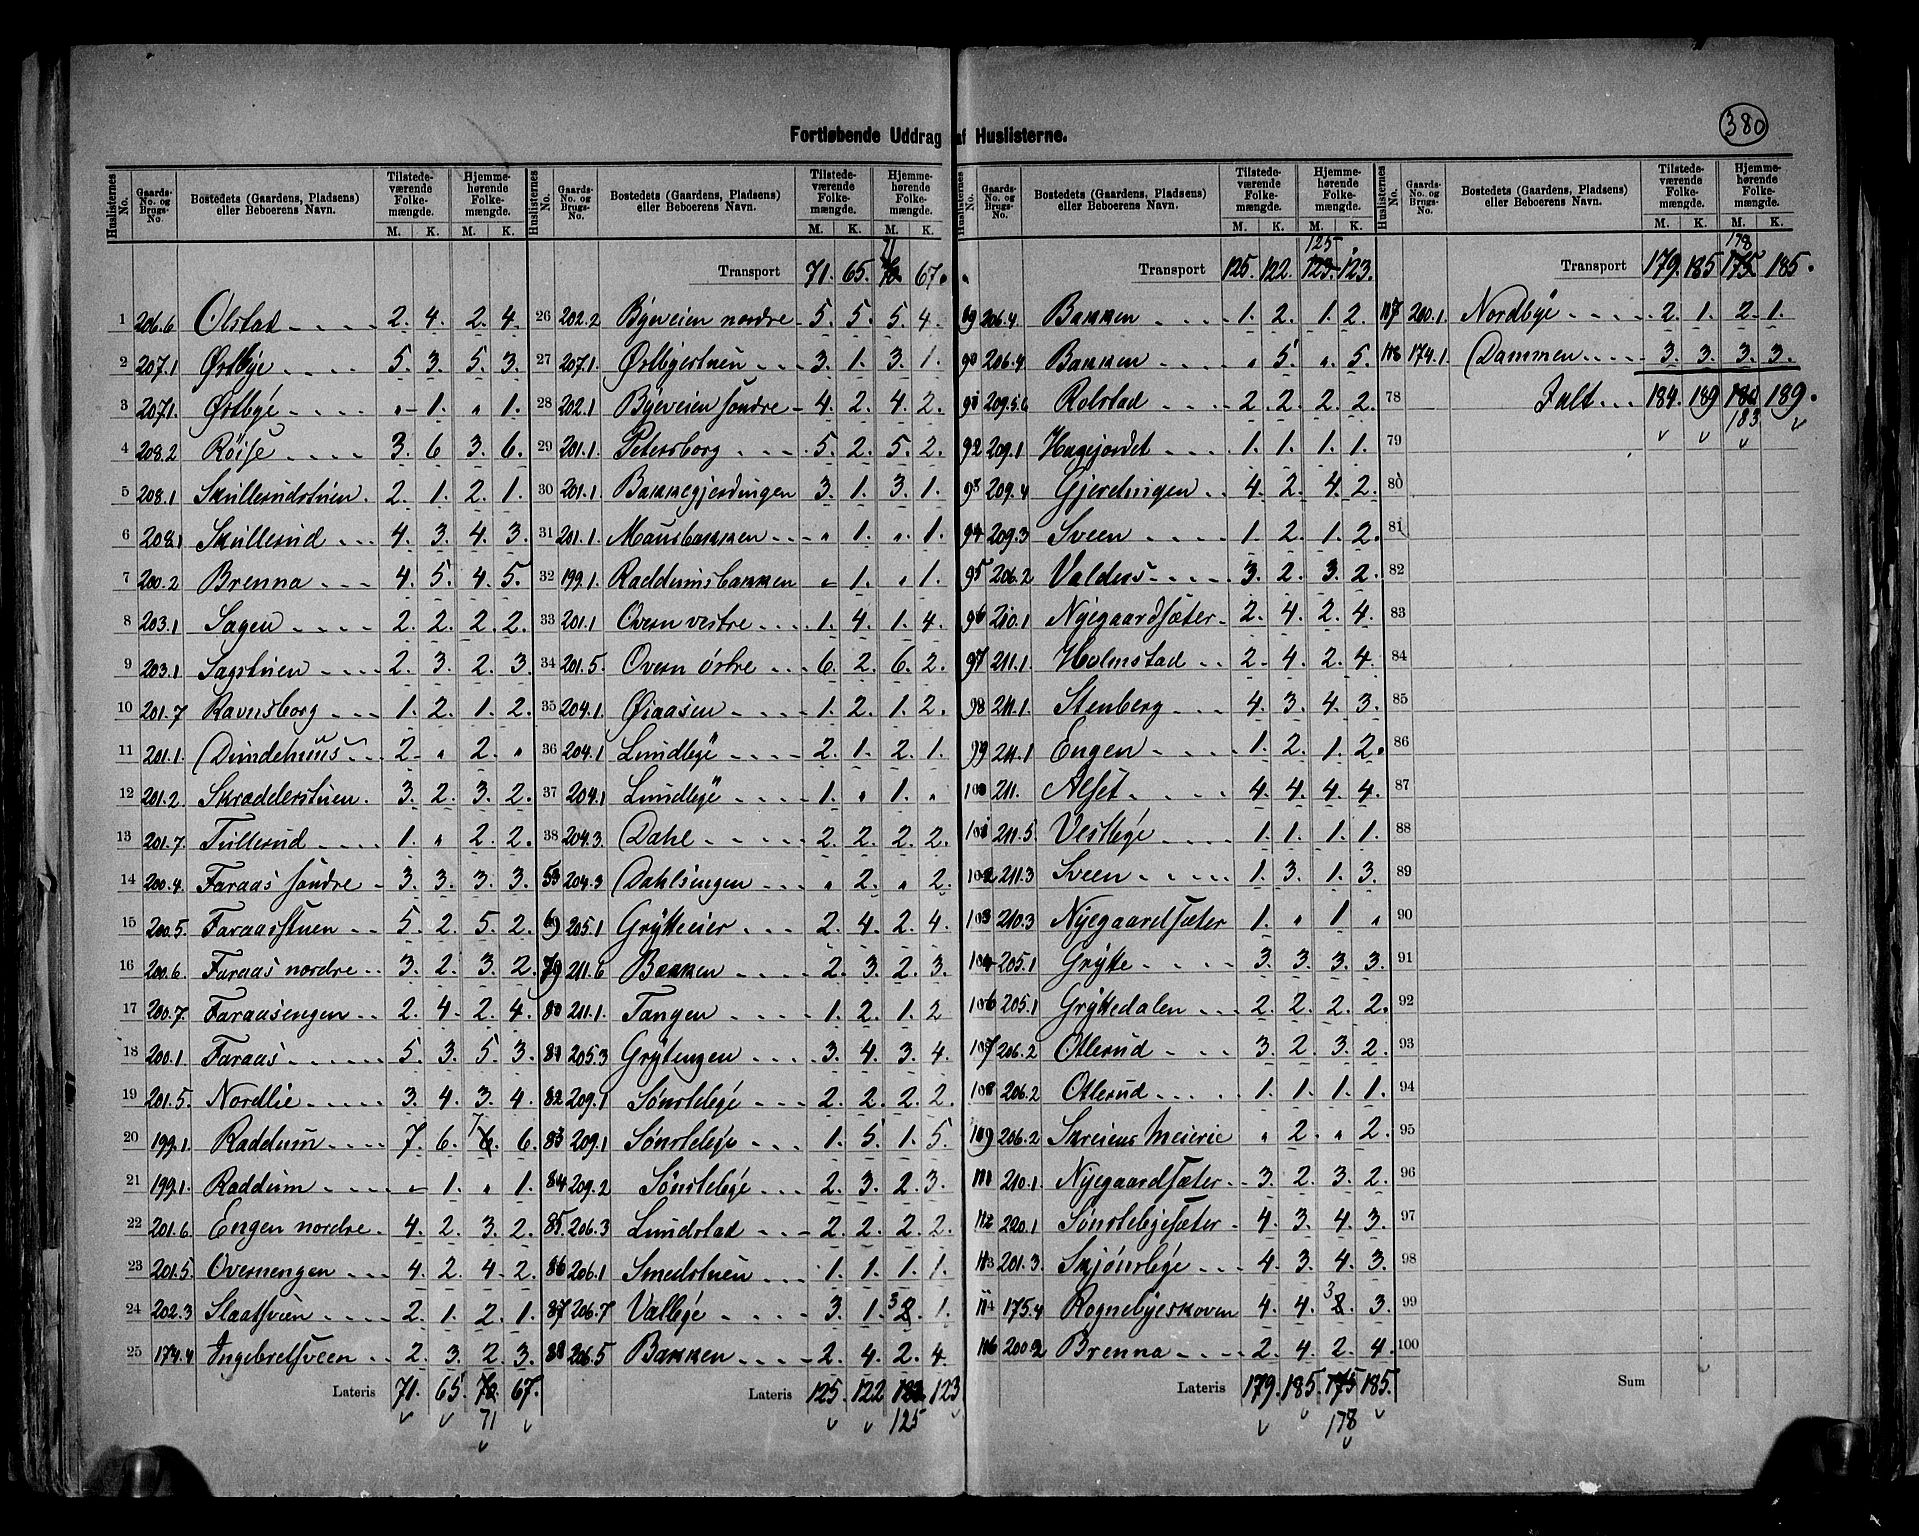 380
Fortløbende Uddrag af Huslisterne.
Huslisternes No. Gaards-No. og Brugs-No. Bostedets (Gaardens, Pladsens) eller Beboerens Navn. Tilstedeværende Folkemængde. M. K. Hjemmehørende Folkemængde. M. K.
1 206.6 Olstad 2. 4. 2. 4.
2 207.1 Østbye 5. 3. 5. 3.
3 207.1 Østbye „ 1. „ 1.
4 208.2 Røise 3. 6. 3. 6.
5 208.1 Skullerudstuen 2. 1. 2. 1.
6 208.1 Skullerud 4. 3. 4. 3.
7 200.2 Brenna 4. 5. 4. 5.
8 203.1 Sagen 2. 2. 2. 2.
9 203.1 Sagstuen 2. 3. 2. 3.
10 201.7 Ravnsborg 1. 2. 1. 2.
11 201.1 Dundehuus 2. „ 2. „
12 201.2 Skradderstuen 3. 2. 3. 2.
13 201.7 Tullerud 1. „ 2. 2.
14 200.4 Faraas søndre 3. 3. 3. 3.
15 200.5 Faraasstuen 5. 2. 5. 2.
16 200.6 Faraas nordre 3. 2. 3. 2.
17 200.7 Faraasengen 2. 4. 2. 4.
18 200.1 Faraas 5. 3. 5. 3.
19 201.5 Nordlie 3. 4. 3. 4.
20 199.1 Raddum 7. 6. 7 6. 6.
21 199.1 Raddum „ 1. „ 1.
22 201.6 Engen nordre 4. 2. 3. 2.
23 201.5 Overnengen 4. 2. 4. 2.
24 202.3 Slaatsveen 2. 1. 2. 1.
25 174.4 Ingebretsveen 2. 3. 2. 3.
Lateris 71. 65. 70 67.
71
Huslisternes No. Gaards-No. og Brugs-No. Bostedets (Gaardens, Pladsens) eller Beboerens Navn. Tilstedeværende Folkemængde. M. K. Hjemmehørende Folkemængde. M. K.
71
Transport 71. 65. 70 67.
26 202.2 Byeveien nordre 5. 5. 5. 4.
27 207.1 Østbyestuen 3. 1. 3. 1.
28 202.1 Byeveien søndre 4. 2. 4. 2.
29 201.1 Petersborg 5. 2. 5. 2.
30 201.1 Bakkegjerdingen 3. 1. 3. 1.
31 201.1 Mausbakken „ 1. „ 1.
32 199.1 Raddumsbakken „ 1. „ 1.
33 201.1 Overn vestre 1. 4. 1. 4.
34 201.5 Overn østre 6. 2. 6. 2.
35 204.1 Øiaasen 1. 2. 1. 2.
36 204.1 Lundbye 2. 1. 2. 1.
37 204.1 Lundbye 1. „ 1. „
38 204.3 Dahl 2. 2. 2. 2.
53 204.3 Dahlsengen „ 2. „ 2.
69 205.1 Grytteeier 2. 4. 2. 4.
79 211.6 Bakken 2. 3. 2. 3.
80 211.1 Tangen 1. 2. 1. 2
81 205.3 Grytengen 3. 4. 3. 4.
82 209.1 Sønstebye 2. 2. 2. 2.
83 209.1 Sønstebye 1. 5. 1. 5.
84 209.2 Sønstebye 2. 3. 2. 3.
85 206.3 Lundstad 2. 2. 2. 2.
86 206.1 Smedstuen 1. 1. 1. 1.
87 206.7 Vallbye 3. 1. 3 2. 1.
88 206.5 Bakken 2. 4. 2. 4.
Lateris 125. 122 123 123
125
Huslisternes No. Gaards-No. og Brugs-No. Bostedets (Gaardens, Pladsens) eller Beboerens Navn. Tilstedeværende Folkemængde. M. K. Hjemmehørende Folkemængde. M. K.
125
Transport 125. 122. 123. 123.
89 206.4 Bakken 1. 2. 1. 2.
90 206.4 Bakken „ 5. „ 5.
91 209.5.6 Rolstad 2. 2. 2. 2.
92 209.1 Hagejordet 1. 1. 1. 1.
93 209.4 Gjerdingen 4. 2. 4. 2.
94 209.3 Sveen 1. 2. 1. 2.
95 206.2 Valders 3. 2. 3. 2.
96 210.1 Nyegaardsæter 2. 4. 2. 4.
97 211.1 Holmstad 2. 4. 2. 4.
98 211.1 Stenberg 4. 3. 4. 3.
99 211.1 Engen 1. 2. 1. 2.
100 211. Alset 4. 4. 4. 4.
101 211.5 Vestbye 1. 1. 1. 1.
102 211.3 Sveen 1. 3. 1. 3.
103 210.3 Nyegaardsæter 1. „ 1. „
104 205.1 Grytte 3. 3. 3. 3.
106 205.1 Gryttedalen 2. 2. 2. 2.
107 206.2 Otterud 3. 2. 3. 2.
108 206.2 Otterud 1. 1. 1. 1.
109 206.2 Skreiens Meierie „ 2. „ 2.
111 210.1 Nyegaardsæter 3. 2. 3. 2.
112 220.1 Sønstebyesæter 4. 3. 4. 3.
113 201.3 Skjønsbye 4. 3. 4. 3.
114 175.4 Rognebyeskoven 4. 4. 3 2. 3.
116 200.2 Brenna 2. 4. 2. 4.
Lateris 179. 185. 175 185.
178
Huslisternes No. Gaards-No. og Brugs-No. Bostedets (Gaardens, Pladsens) eller Beboerens Navn. Tilstedeværende Folkemængde. M. K. Hjemmehørende Folkemængde. M. K.
178
Transport 179. 185 175 185.
117 200.1 Nordbye 2. 1. 2. 1.
118 174.1 Dammen 3. 3. 3. 3.
78 Ialt 184. 189 180 189.
79 183.
80
81
82
83
84
85
86
87
88
89
90
91
92
93
94
95
96
97
98
99
100
Sum